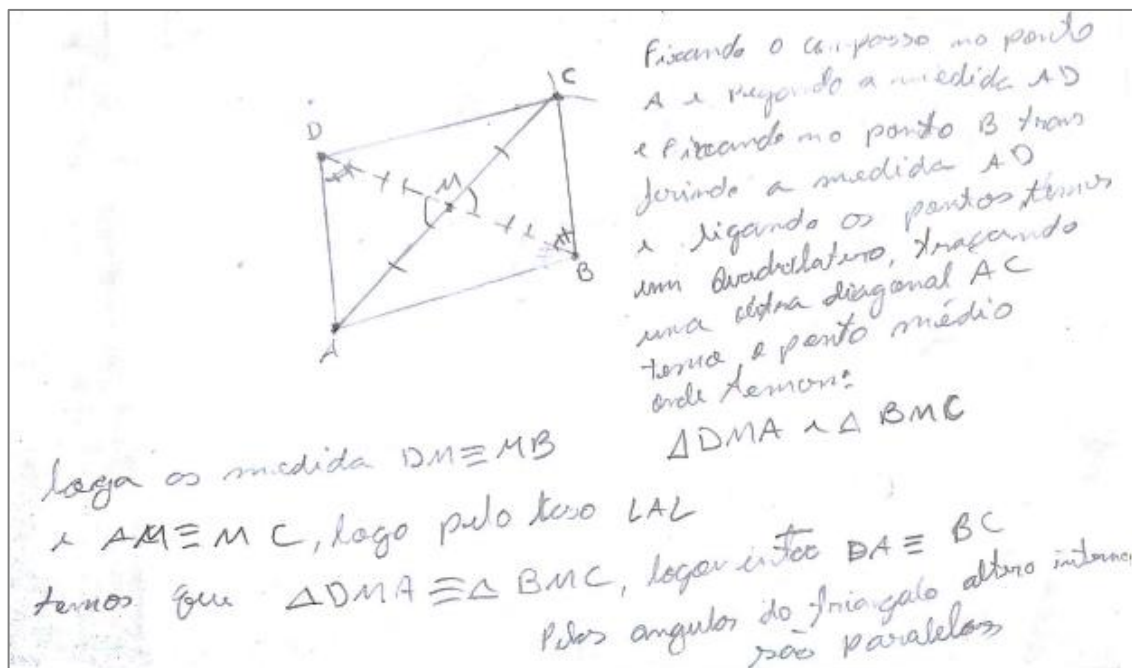 D
C
M
B
A
Fixando o compasso no ponto
A e pegando a medida AD
e fixando no ponto B trans
ferindo a medida AD
e ligando os pontos, temos
um Quadrilatero, traçando
uma outra diagonal AC
temos o ponto médio
onde temos:
ΔDMA e Δ BMC
logo os medida DM≡MB
e AM≡MC, logo pelo caso LAL
temos que ΔDMA≡Δ BMC, logo então DA≡BC
Pelos angulos do triangulo altero interno
são paralelos